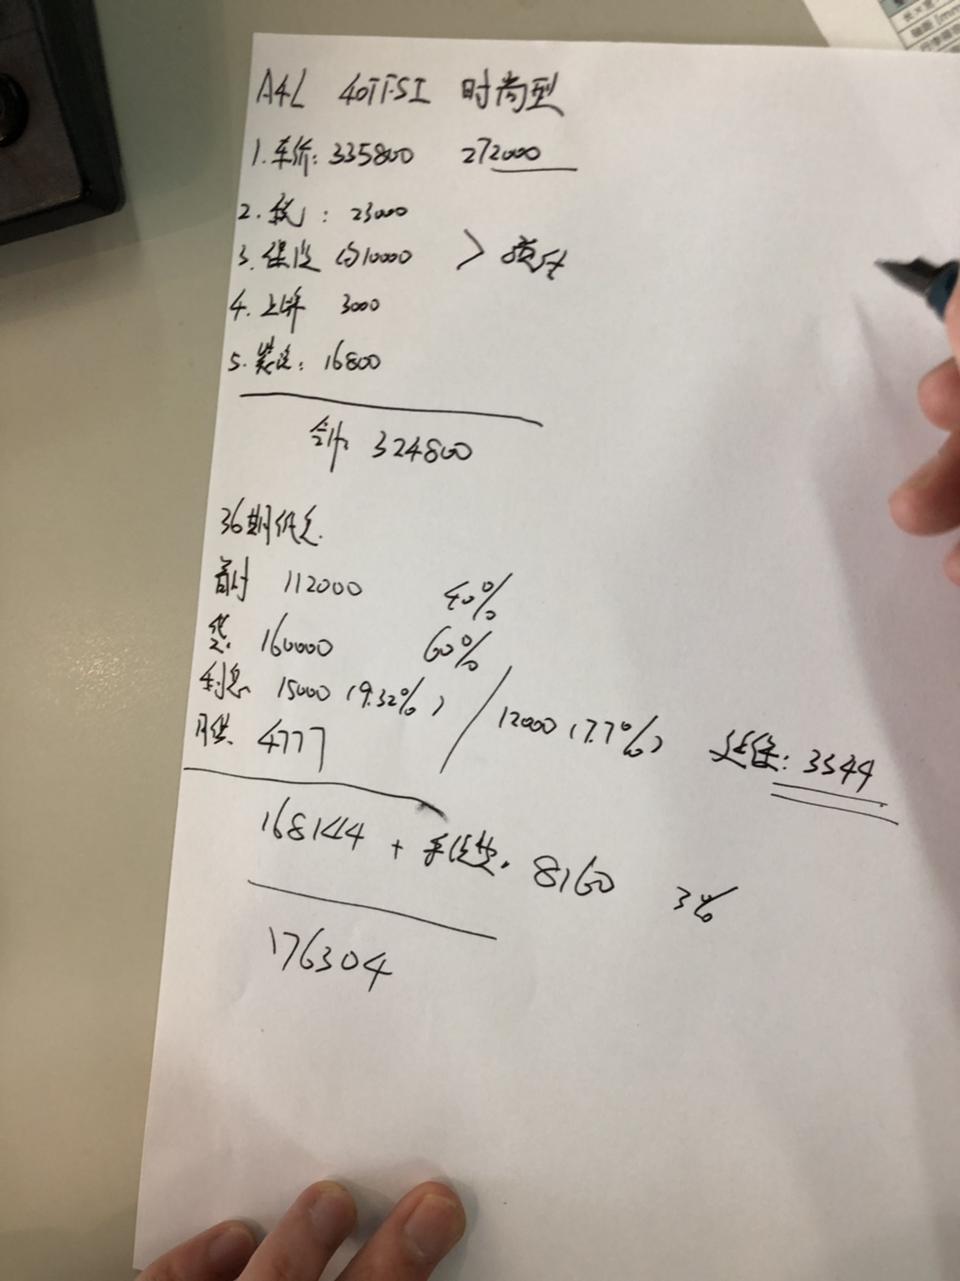 A4L 40TFSI 时尚型
1.车价: 335800 272000
2.税: 23000
3.保险 约10000 >
4.上牌 3000
5.装潢: 16800
合计 324800
36期低息
首付 112000 40%
贷 160000 60%
利息 15000 (9.32%) / 12000 (7.7%) 3544
月供 4777
168144 + 手续费. 8160 3%
176304